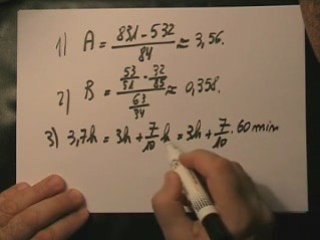 1) A = (831 - 532)/84 ≈ 3,56.
2) B = (53/31 - 32/85)/(63/34) ≈ 0,358.
3) 3,7h = 3h + 7/10 h = 3h + 7/10 · 60 min